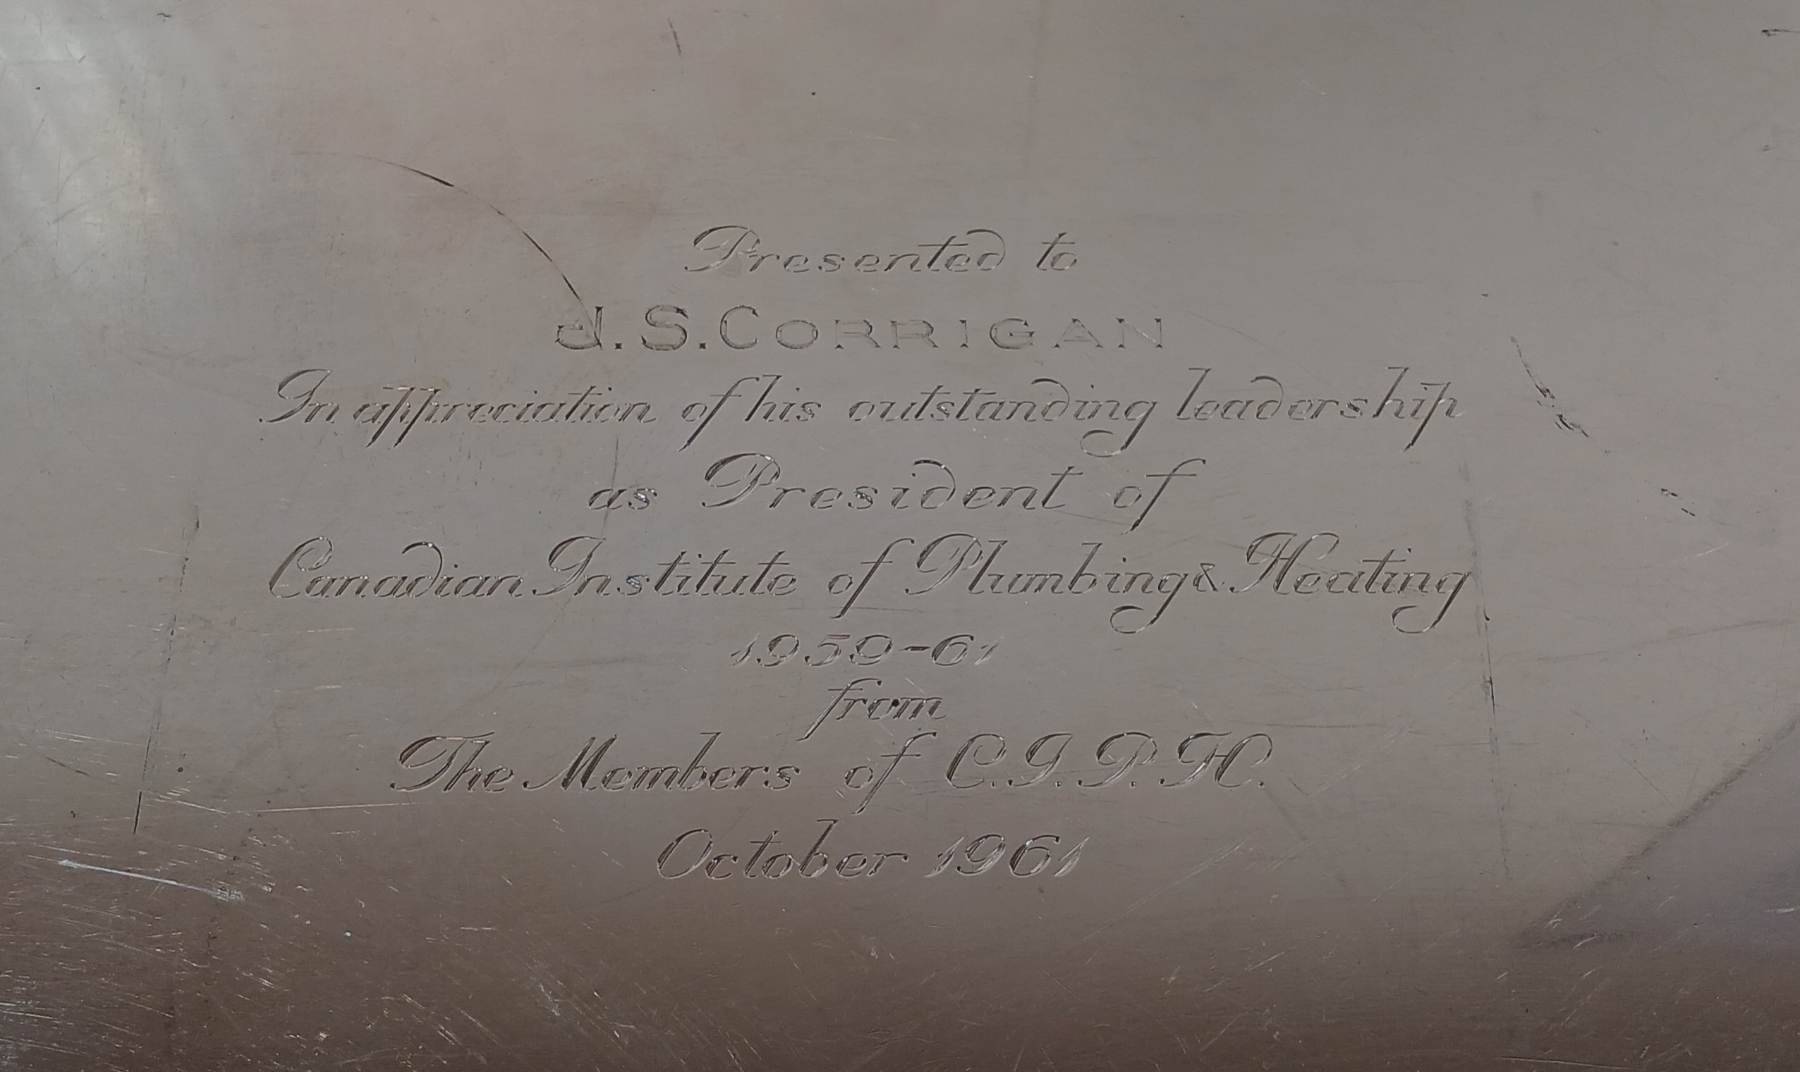 Presented to
J.S.CORRIGAN
In appreciation of his outstanding leadership
as President of
Canadian Institute of Plumbing & Heating
1959-61
from
The Members of C.I.P.H.
October 1961